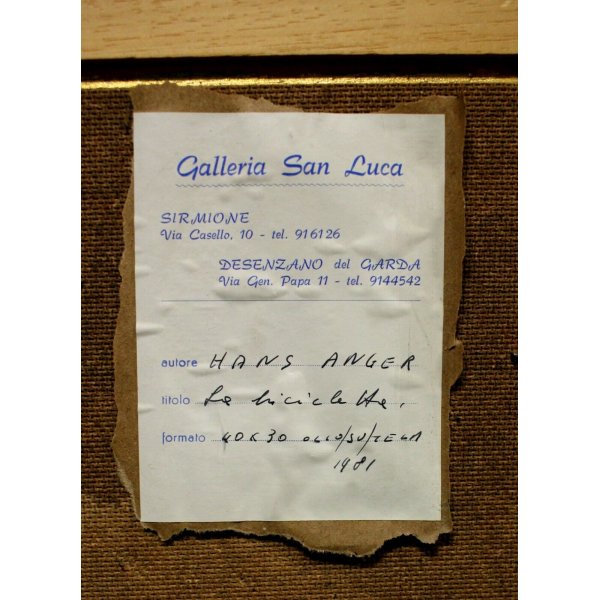 Galleria San Luca
SIRMIONE
Via Casello, 10 - tel. 916126
DESENZANO del GARDA
Via Gen. Papa 11 - tel. 9144542
autore HANS ANGER
titolo La bicicletta.
formato 40x30 OLIO/SU/TELA
1981